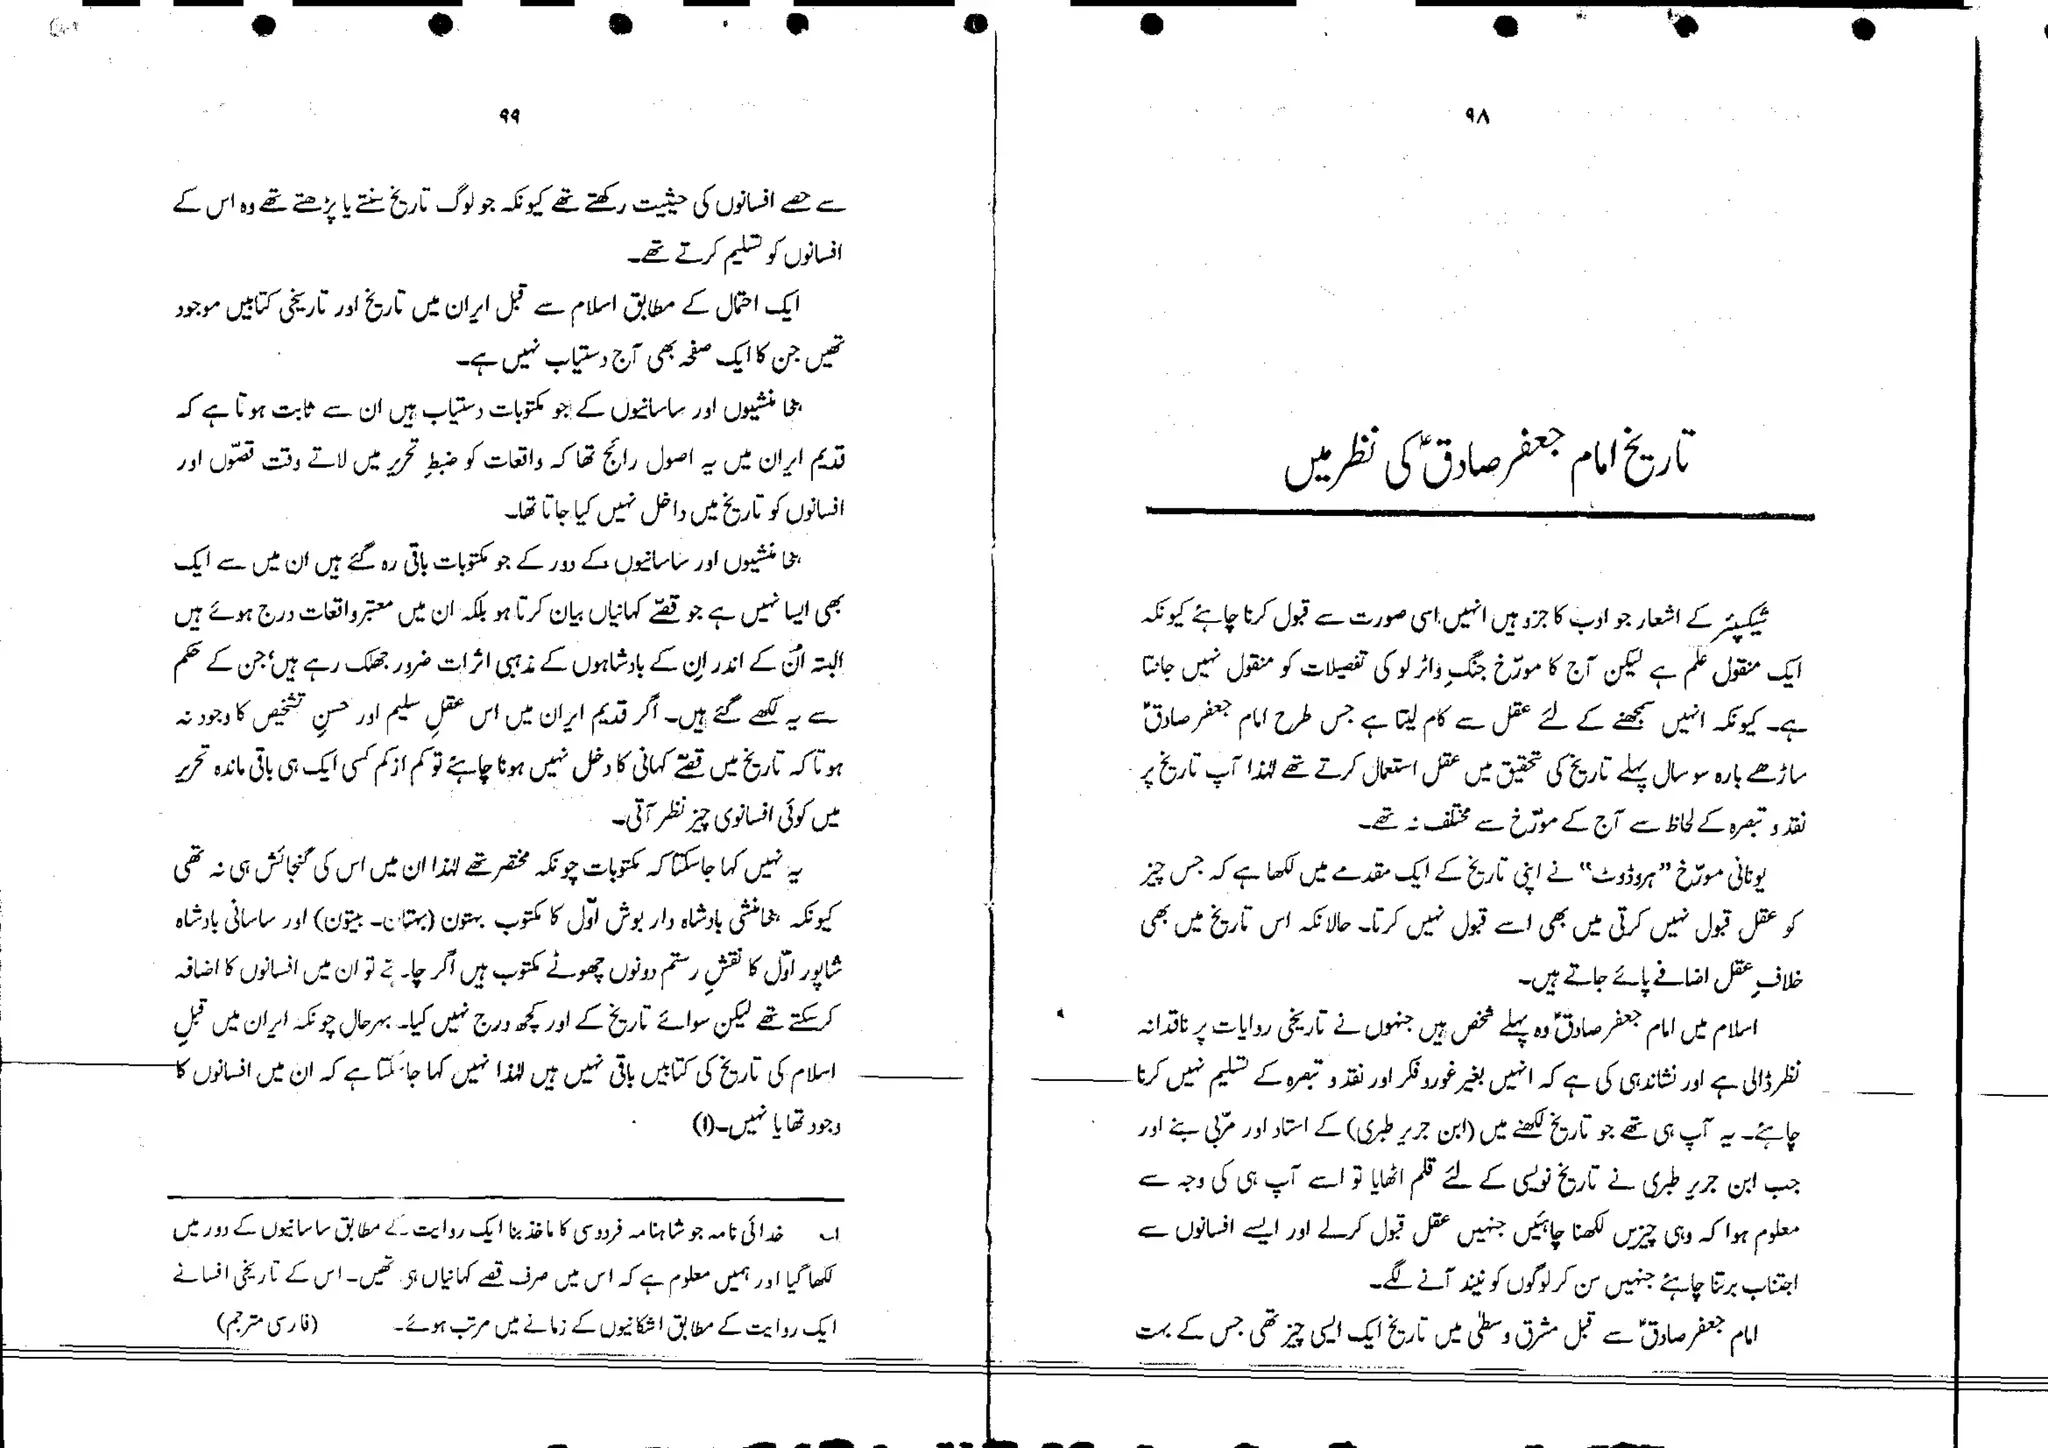 ۹۸
تاریخ امام جعفر صادقؑ کی نظر میں
شیکسپیئر کے اشعار جو ادب کا جزو ہیں انہیں اسی صورت سے قبول کرنا چاہئے کیونکہ
ایک منقول علم ہے لیکن آج کا مورّخ جنگِ واٹر لو کی تفصیلات کو منقول نہیں جانتا
ہے۔ کیونکہ انہیں سمجھنے کے لئے عقل سے کام لیتا ہے جس طرح امام جعفر صادقؑ
ساڑھے بارہ سو سال پہلے تاریخ کی تحقیق میں عقل استعمال کرتے تھے لہٰذا آپ تاریخ پر
نقد و تبصرہ کے لحاظ سے آج کے مورّخ سے مختلف نہ تھے۔
یونانی مورّخ ”ہروڈوٹ“ نے اپنی تاریخ کے ایک مقدمے میں لکھا ہے کہ جس چیز
کو عقل قبول نہیں کرتی میں بھی اسے قبول نہیں کرتا۔ حالانکہ اس تاریخ میں بھی
خلافِ عقل اضافے پائے جاتے ہیں۔
اسلام میں امام جعفر صادقؑ وہ پہلے شخص ہیں جنہوں نے تاریخی روایات پر ناقدانہ
نظر ڈالی ہے اور نشاندہی کی ہے کہ انہیں بغیر غور و فکر اور نقد و تبصرہ کے تسلیم نہیں کرنا
چاہئے۔ یہ آپ ہی تھے جو تاریخ لکھنے میں (ابن جریر طبری) کے استاد اور مربّی بنے اور
جب ابن جریر طبری نے تاریخ نویسی کے لئے قلم اٹھایا تو اسے آپ ہی کی وجہ سے
معلوم ہوا کہ وہی چیزیں لکھنا چاہئیں جنہیں عقل قبول کرلے اور ایسے افسانوں سے
اجتناب برتنا چاہئے جنہیں سن کر لوگوں کو نیند آنے لگے۔
امام جعفر صادقؑ سے قبل مشرق وسطٰی میں تاریخ ایک ایسی چیز تھی جس کے بہت
۹۹
سے حصے افسانوں کی حیثیت رکھتے تھے کیونکہ جو لوگ تاریخ سنتے یا پڑھتے تھے وہ اس کے
افسانوں کو تسلیم کرتے تھے۔
ایک احتمال کے مطابق اسلام سے قبل ایران میں تاریخ اور تاریخی کتابیں موجود
تھیں جن کا ایک صفحہ بھی آج دستیاب نہیں ہے۔
ہخامنشیوں اور ساسانیوں کے جو مکتوبات دستیاب ہیں ان سے ثابت ہوتا ہے کہ
قدیم ایران میں یہ اصول رائج تھا کہ واقعات کو ضبطِ تحریر میں لاتے وقت قصّوں اور
افسانوں کو تاریخ میں داخل نہیں کیا جاتا تھا۔
ہخامنشیوں اور ساسانیوں کے دور کے جو مکتوبات باقی رہ گئے ہیں ان میں سے ایک
بھی ایسا نہیں ہے جو قصّے کہانیاں بیان کرتا ہو بلکہ ان میں معتبر واقعات درج ہوئے ہیں
البتہ اُن کے اندر اِن کے بادشاہوں کے مذہبی اثرات ضرور جھلک رہے ہیں، جن کے حکم
سے یہ لکھے گئے ہیں۔ اگر قدیم ایران میں اس عقلِ سلیم اور حسنِ تشخیص کا وجود نہ
ہوتا کہ تاریخ میں قصّے کہانی کا دخل نہیں ہونا چاہئے تو کم از کم کسی ایک ہی باقی ماندہ تحریر
میں کوئی افسانوی چیز نظر آتی۔
یہ نہیں کہا جاسکتا کہ مکتوبات چونکہ مختصر تھے لہٰذا ان میں اس کی گنجائش ہی نہ تھی
کیونکہ ہخامنشی بادشاہ داریوش اوّل کا مکتوب بہتون (بہتان۔ بیتون) اور ساسانی بادشاہ
شاپور اوّل کا نقشِ رستم دونوں چھوٹے مکتوب ہیں اگر تو ان میں افسانوں کا اضافہ
کرسکتے تھے لیکن سوائے تاریخ کے اور کچھ درج نہیں کیا۔ بہرحال چونکہ ایران میں قبلِ
اسلام کی تاریخ کی کتابیں باقی نہیں ہیں لہٰذا نہیں کہا جاسکتا ہے کہ ان میں افسانوں کا
وجود تھا یا نہیں۔(۱)
۱۔ خدائی نامہ جو شاہنامہ فردوسی کا ماخذ بنا ایک روایت کے مطابق ساسانیوں کے دور میں
لکھا گیا اور ہمیں معلوم ہے کہ اس میں صرف قصے کہانیاں ہی تھیں۔ اس کے تاریخی افسانے
ایک روایت کے مطابق اشکانیوں کے زمانے میں مرتب ہوئے۔ (فارسی مترجم)